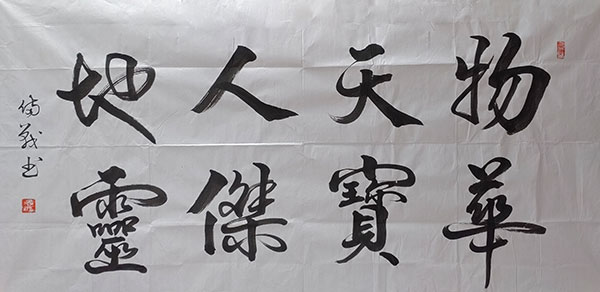 物華
天寶
人傑
地靈
儒義书